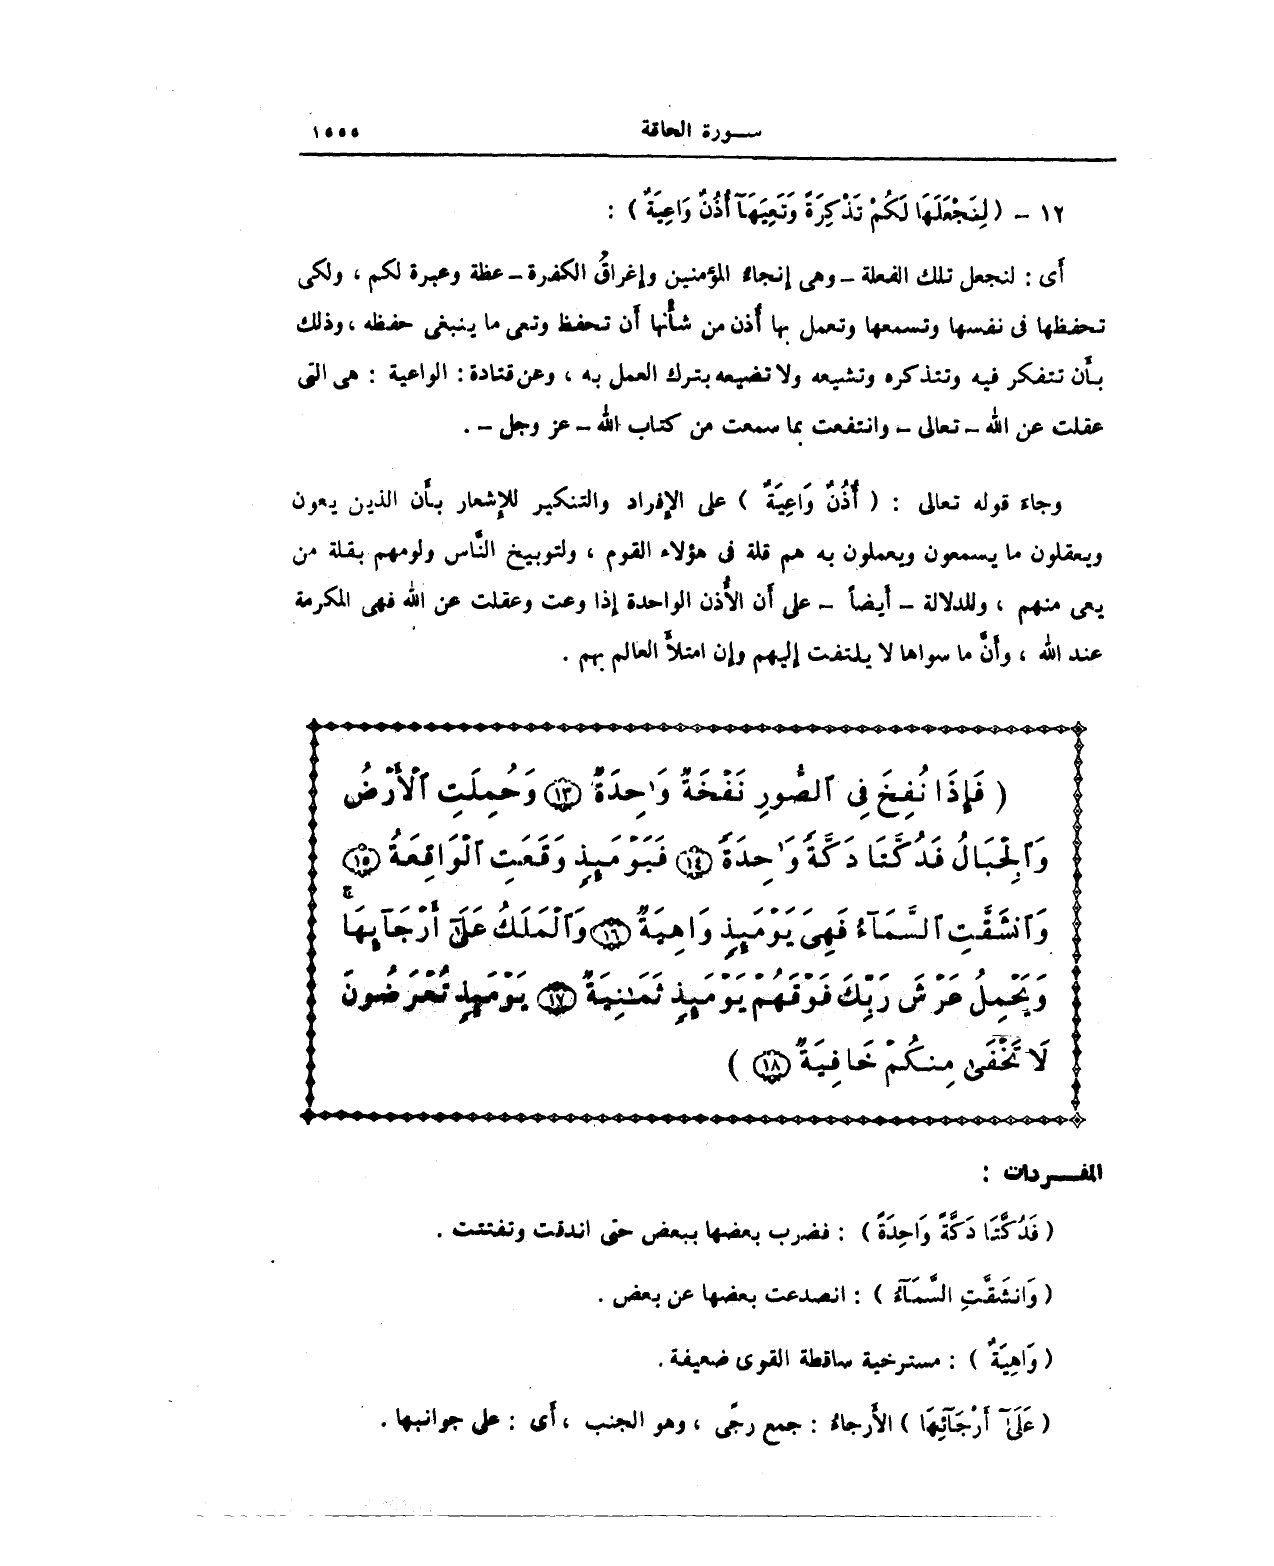 سـورة الحاقة ١٥٥٥
١٢ - ( لِنَجْعَلَهَا لَكُمْ تَذْكِرَةً وَتَعِيَهَآ أُذُنٌ وَاعِيَةٌ ) :
أَى : لنجعل تلك الفعلة - وهى إِنجاءُ المؤمنين وإِغراقُ الكفرة - عظة وعبرة لكم ، ولكى
تحفظها فى نفسها وتسمعها وتعمل بها أُذن من شأْنها أَن تحفظ وتعى ما ينبغى حفظه ، وذلك
بأَن تتفكر فيه وتتذكره وتشيعه ولا تضيعه بترك العمل به ، وعن قتادة : الواعية : هى التى
عقلت عن الله - تعالى - وانتفعت بما سمعت من كتاب الله - عز وجل - .
وجاءَ قوله تعالى : ( أُذُنٌ وَاعِيَةٌ ) على الإِفراد والتنكير للإِشعار بأَن الذين يعون
ويعقلون ما يسمعون ويعملون به هم قلة فى هؤلاء القوم ، ولتوبيخ النَّاس ولومهم بقلة من
يعى منهم ، وللدلالة - أَيضاً - على أَن الأُذن الواحدة إذا وعت وعقلت عن الله فهى المكرمة
عند الله ، وأَنَّ ما سواها لا يلتفت إليهم وإن امتلأَ العالم بهم .
( فَإِذَا نُفِخَ فِى ٱلصُّورِ نَفْخَةٌ وَٰحِدَةٌ ١٣ وَحُمِلَتِ ٱلْأَرْضُ
وَٱلْجِبَالُ فَدُكَّتَا دَكَّةً وَٰحِدَةً ١٤ فَيَوْمَئِذٍ وَقَعَتِ ٱلْوَاقِعَةُ ١٥
وَٱنشَقَّتِ ٱلسَّمَآءُ فَهِىَ يَوْمَئِذٍ وَاهِيَةٌ ١٦ وَٱلْمَلَكُ عَلَىٰٓ أَرْجَآئِهَا ۚ
وَيَحْمِلُ عَرْشَ رَبِّكَ فَوْقَهُمْ يَوْمَئِذٍ ثَمَٰنِيَةٌ ١٧ يَوْمَئِذٍ تُعْرَضُونَ
لَا تَخْفَىٰ مِنكُمْ خَافِيَةٌ ١٨ )
المفـردات :
( فَدُكَّتَا دَكَّةً وَاحِدَةً ) : فضرب بعضها ببعض حتى اندقت وتفتتت .
( وَانشَقَّتِ السَّمَآءُ ) : انصدعت بعضها عن بعض .
( وَاهِيَةٌ ) : مسترخية ساقطة القوى ضعيفة .
( عَلَىٰٓ أَرْجَآئِهَا ) الأَرجاءُ : جمع رجًى ، وهو الجنب ، أَى : على جوانبها .